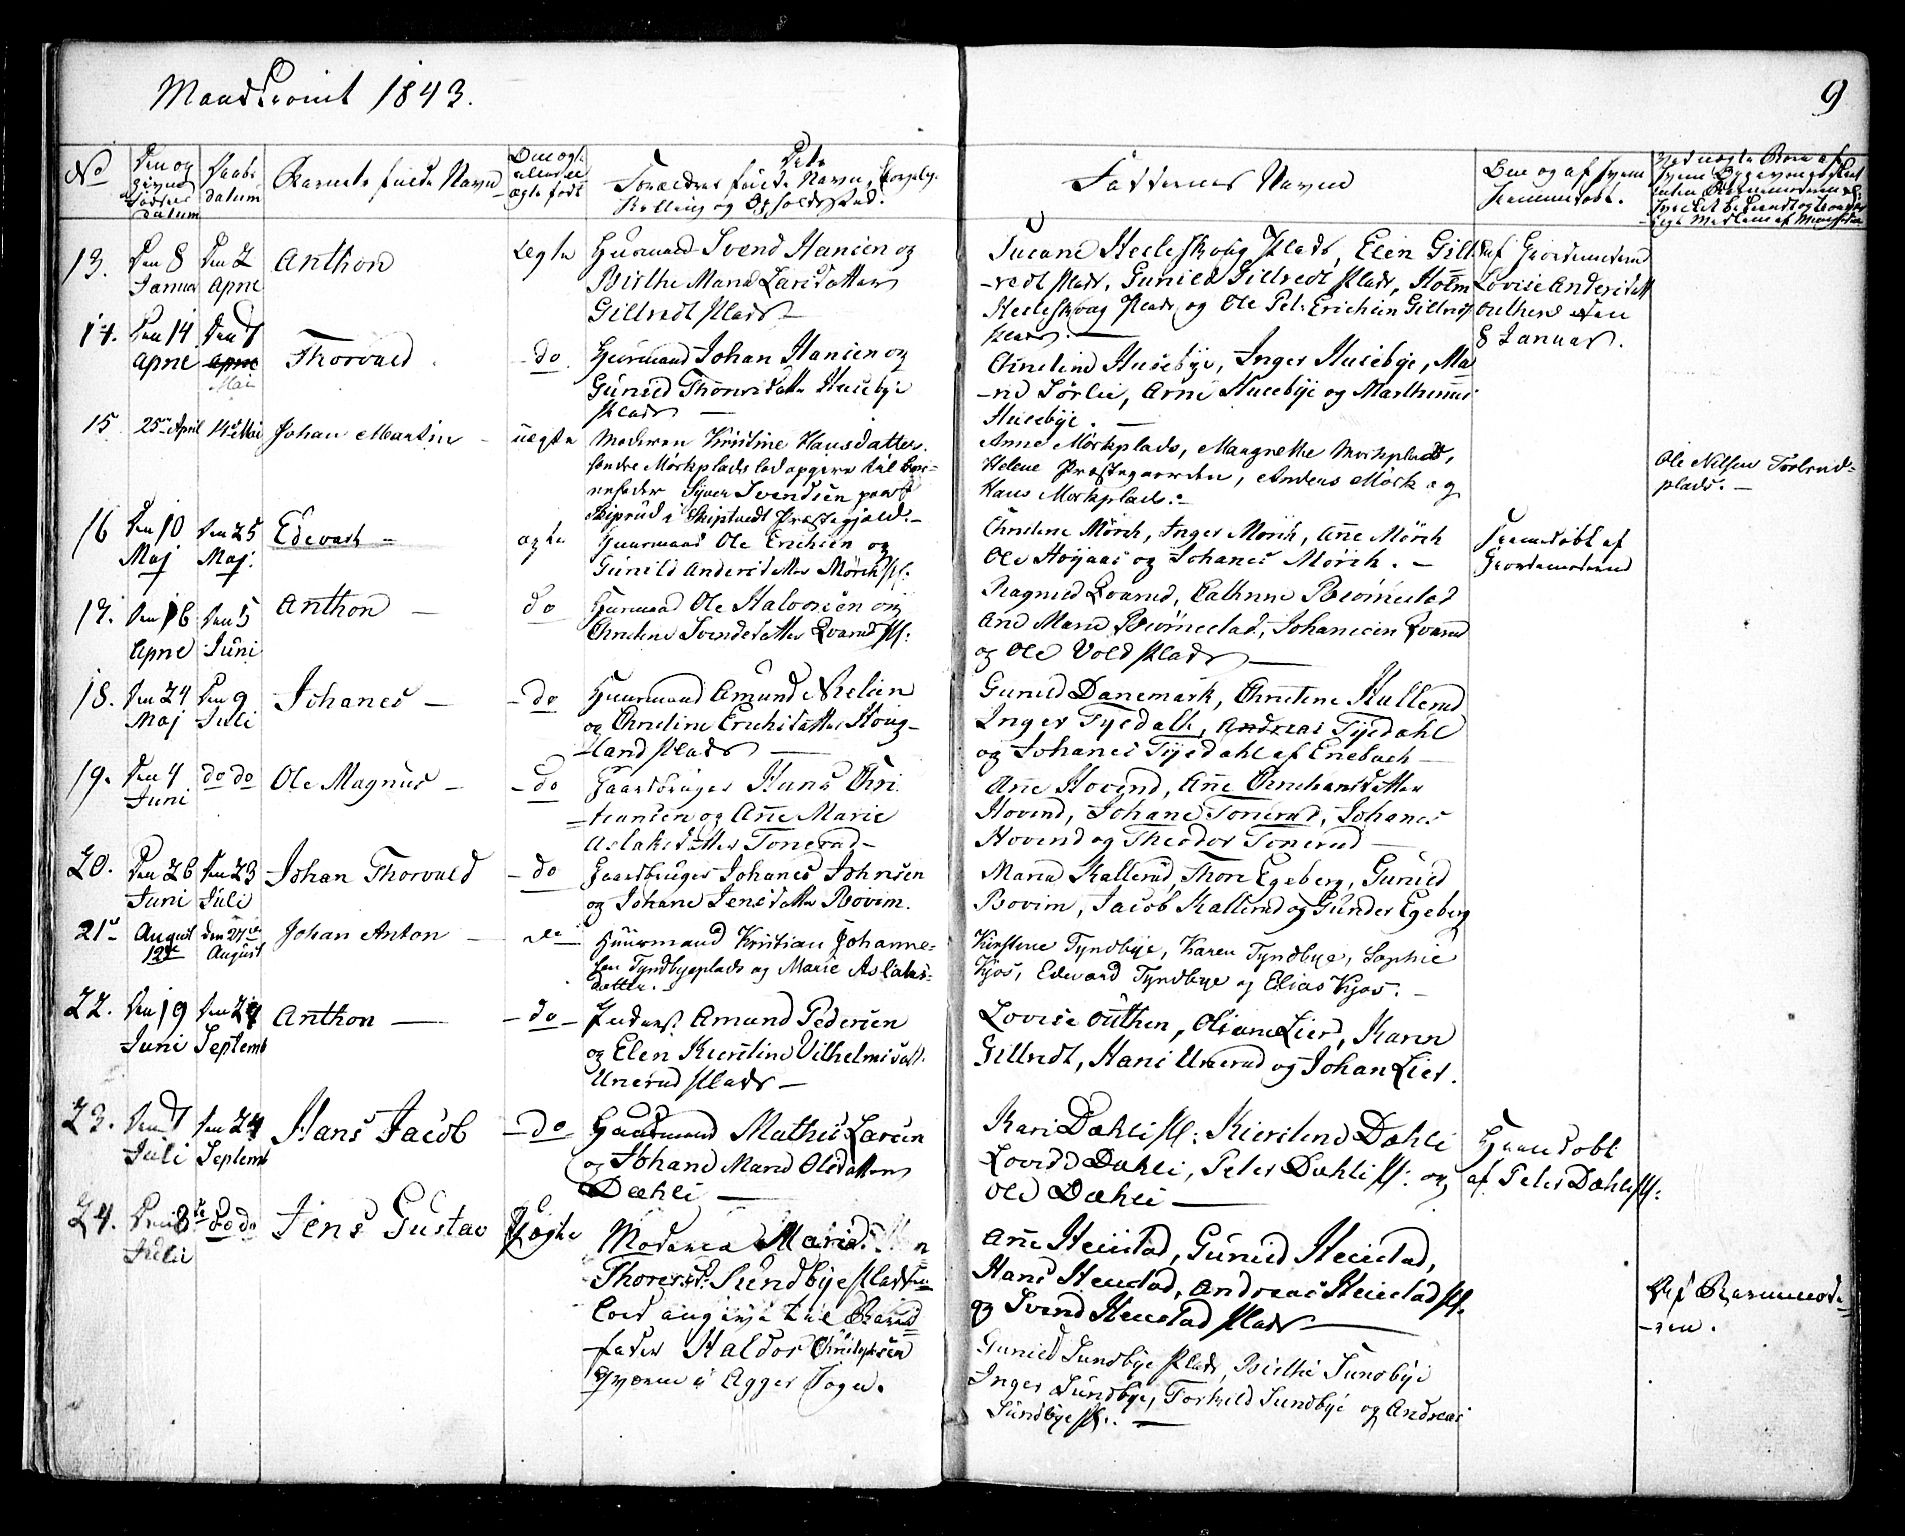 Mandkiønt 1843.
9
No
Den og
Fødsels
datum
Daabs
datum
Barnets fulde Navn
Om ægte
eller u
ægte født
Forældres fulde Navn, borgelige
Stilling og Opholdssted.
Faddernes Navne
Om og af hvem
hiemmedøbt.
13.
Den 8
Januar
Den 2
April
Anthon
ægte
Huusmand Svend Hansen og
Birthe Marie Larsdatter
Gillredt plads
Helleskoug plads, Elen Gill-
redt plads, Gunild Gillredt plads, Holm
Helleskoug plads og Ole Pet: Erichsen Gillredt
plads.
af Giordemoderen
Lovise Andersdatt
outhen den
8 Januar.
14.
Den 14
April
Den 7
April
Mai
Thorvald
do
Huusmand Johan Hansen og
Gunild Thoresdatter Husebye
plads
Christine Husebye, Inger Husebye, Ma-
rie Sørlie, Arne Husebye og Marthinus
Husebye.
15
25de April
14de Mai
Johan Martin
uægte
Moderen Kristine Hansdatter
søndre Mørkplads lod opgive til Bar-
nefader Syver Svendsen paa
Skiprud i Skiptvedt Præstegjeld.
Anne Mørkplads, Maagrethe Mørkplads,
Helene Præstegaarden, Anders Mørk og
Hans Mørkplads.
Ole Nilsen
plads.
16
Den 10
Maj
Den 25
Maj.
Edevart
ægte
Huusmand Ole Erichsen og
Gunild Andersdatter Mørch pl:
Christine Mørch, Inger Mørch, Anne Mørch
Ole Høyaas og Johanes Mørch.
Hiemedøbt af
Giordemoderen
17.
Den 16
April
Den 5
Juni
Anthon
do
Huusmand Ole Halvorsen og
Christine Svendsdatter Qvarud pl:
Ragnild Qvarud, Cathrine Biørnestad
Ane Marie Biørnestad, Johannesen Qvarud
og Ole Vold plads
18.
Den 24
Maj
Den 9
Juli
Johanes
do
Huusmand Amund Nielsen
og Christine Erichsdatter Houg-
land plads
Gunild Danemark, Christine Kallerud
Inger Tyjedalh, Andreas Tyjedahl
og Johanes Tyjedahl af Enebach
19.
Den 4
Juni
do do
Ole Magnus
do
Gaardbruger Hans Chri
stiansen og Anne Marie
Aslaksdatter Tonerud
Anne Hovind, Anne Christiansdatter
Hovind, Johane Tonerud, Johanes
Hovind og Theodor Tonerud
20.
Den 26
Juni
Den 23
Juli
Johan Thorvald
do
Gaardbruger Johanes Johnsen
og Johane Jensdatter Bovim.
Maria Kallerud, Thore Egeberg, Gunild
Bovim, Jacob Kallerud og Gunder Egeberg
21
August
12te
den 27de
August
Johan Anton
do
Huusmand Kristian Johanne-
sen Tyndbyeplads og Marie Aslaks-
datter.
Kirstine Tyndbye, Karen Tyndbye, Sophie
Kjos, Edevard Tyndbye og Elias Kjos.
22.
Den 19
Juni
Den 24
Septemb
Anthon
do
Inderst. Amund Pedersen
og Elen Kierstine Vilhelmsdatt.
Unerud plads
Lovise Outhen, Oliane Lier, Karen
Gillredt, Hans Unerud og Johan Lier.
23.
Den 7
Juli
Den 24
Septemb
Hans Jacob
do
Huusmand Mathis Larsen
og Johane Marie Olsdatter
Dæhli
Kari Dæhli pl: Kierstine Dæhli
Lovise Dæhli, Peter Dæhli pl: og
Ole Dæhli
Hiemedøbt
af Peter Dæhli pl:
24.
Den 8de
Julii
do do
Jens Gustav
Uægte
Moderen Marie
Thoresd. Sundbye pladsen
lod angive til Barne
fader Haldor Christophersen
Qværne i Agger Sogn.
Anne Heiestad, Gunild Heiestad,
Hans Heiestad, Andreas Heiestad pl:
og Svend Heiestad plads
Af Barnemode-
ren.
Gunild Sundbye plads, Birthe Sundbye
Inger Sundbye, Torkeld Sundbye og Andreas
Sundbye pl:.